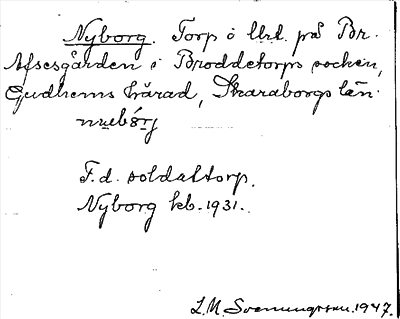 Nyborg. Torp å lht. på Br.
Afsesgården i Broddetorps socken,
Gudhems härad, Skaraborgs län.
F.d. soldattorp.
Nyborg kb. 1931.
L.M. Svenungsson. 1947.